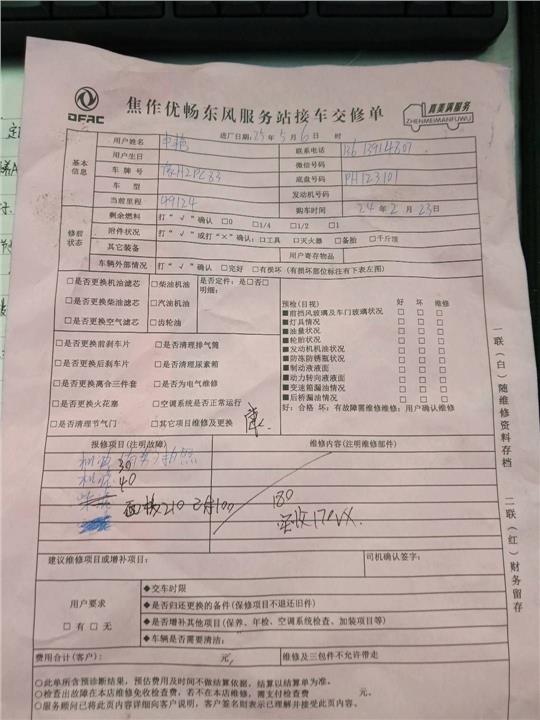 DFAC
焦作优畅东风服务站接车交修单
真美满服务
ZHENMEIMANFUWU
进厂日期:25年5月6日 时
基本信息
用户姓名
联系电话
用户生日
微信号码
车牌号 豫H2PC33
底盘号码 PH123101
车型
发动机号码
当前里程 99124
购车时间 24年2月23日
修前状态
剩余燃料 打“√”确认 □0 □1/4 □1/2 □1
附件状况 打“√”或打“×”确认:□工具 □灭火器 □备胎 □千斤顶
其它装备
用户寄存物品
车辆外部情况 打“√”确认 □完好 □有损坏(有损坏部位标注有下表左图)
□是否更换机油滤芯 □柴油机油
□是否更换柴油滤芯 □汽油机油
□是否更换空气滤芯 □齿轮油
是否定件:是□否□
明细:
□是否更换前刹车片 □是否清理排气筒
□是否更换后刹车片 □是否清理尿素箱
□是否更换离合三件套 □是否为电气维修
□是否更换火花塞 □空调系统是否正常运行
□是否清理节气门 □其它项目维修及更换
预检(目视) 好 坏 维修
■前挡风玻璃及车门玻璃状况 □ □ □
■灯具情况 □ □ □
■油量状况 □ □ □
■轮胎状况 □ □ □
■发动机机油状况 □ □ □
■防冻防锈瓶状况 □ □ □
■制动液液面 □ □ □
■动力转向液液面 □ □ □
■变速箱漏油情况 □ □ □
■后桥漏油情况 □ □ □
好:合格 坏:有故障需维修维修:用户确认维修
报修项目(注明故障)
维修内容(注明维修部件)
机滤 30
机滤 40
210
100
180
实收170
建议维修项目或增补项目:
司机确认签字:
用户要求
□有 □无
◆交车时限
◆是否归还更换的备件(保修项目不退还旧件)
◆是否增补其他项目(保养、年检、空调系统检查、加装项目等)
◆车辆是否需要清洁:
费用合计(客户): 元,
维修及三包件不允许带走
○此单所含预诊断结果,预估费用及时间不做结算依据,结算以结算单为准。
○检查出故障在本店维修免收检查费,若不在本店维修,需支付检查费 元。
○服务顾问已将此页内容详细向客户说明,客户签名则表示已理解并接受此页内容。
一联(白)随维修资料存档
二联(红)财务留存